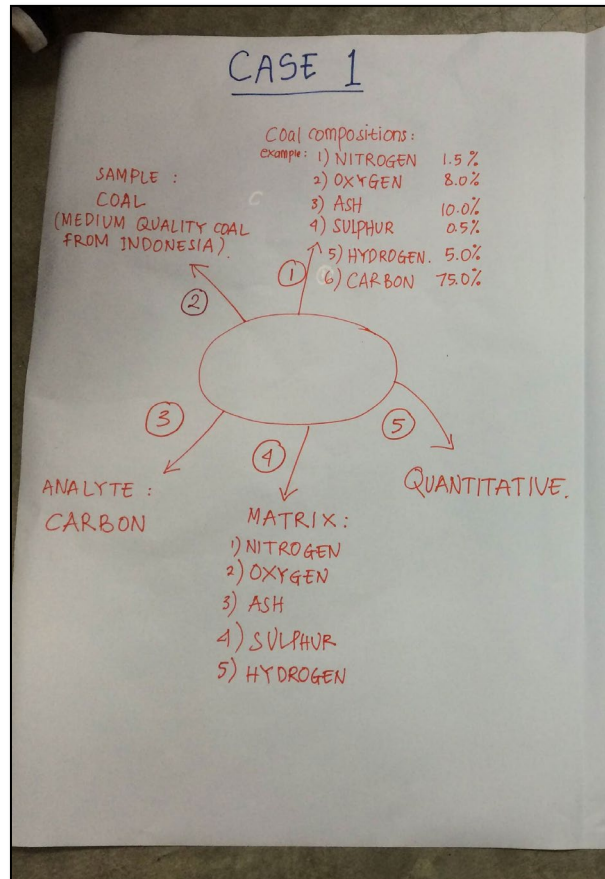 CASE 1
Coal compositions:
example: 1) NITROGEN 1.5%
2) OXYGEN 8.0%
3) ASH 10.0%
4) SULPHUR 0.5%
5) HYDROGEN. 5.0%
6) CARBON 75.0%
SAMPLE :
COAL
(MEDIUM QUALITY COAL
FROM INDONESIA).
1
2
3
4
5
ANALYTE :
CARBON
MATRIX :
1) NITROGEN
2) OXYGEN
3) ASH
4) SULPHUR
5) HYDROGEN
QUANTITATIVE.